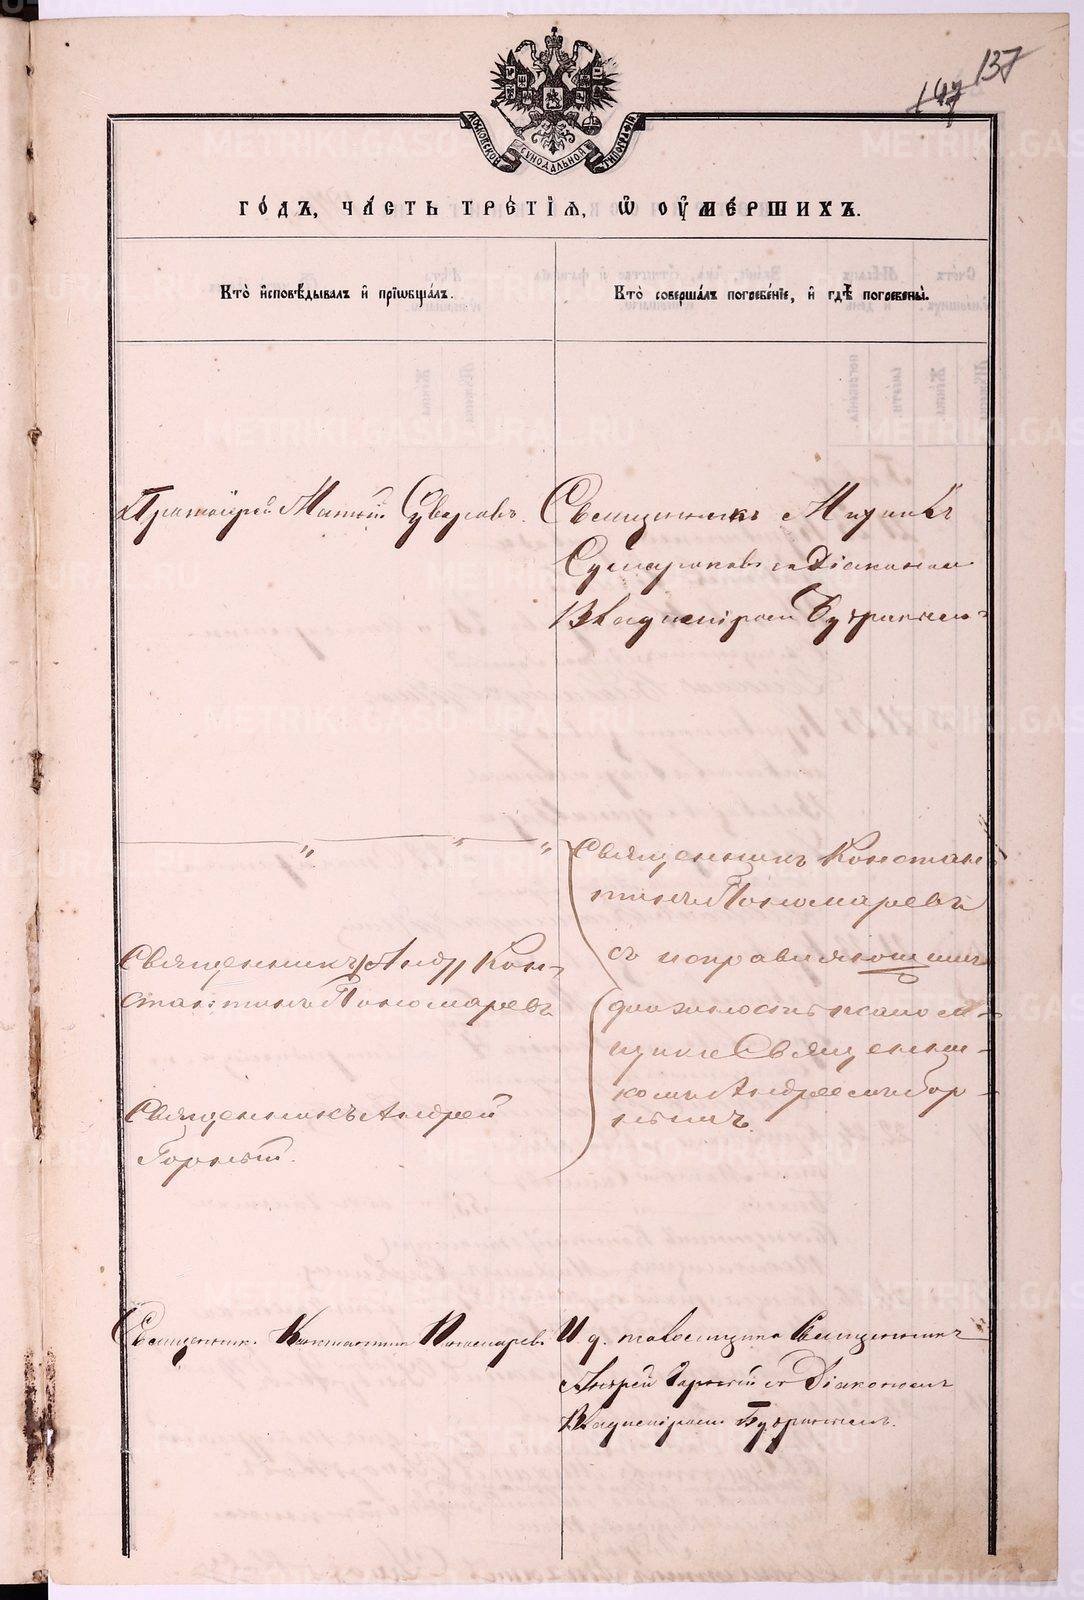 137
147
МОСКОВСКОЙ СѴНОДАЛЬНОЙ ТИПОГРАФІИ
ГО́ДЪ, ЧА́СТЬ ТРЕ́ТІѦ, Ѡ҆ ОУ҆МЕ́РШИХЪ.
Кто̀ и҆сповѣ́дывалъ и҆ прїѡбща́лъ.
Кто̀ соверша́лъ погребе́нїе, и҆ гдѣ̀ погребены̀.
Протоіерей Матѳій Суворовъ.
Священникъ
Сумароковъ съ Діакономъ
Владиміромъ
" " "
Священникъ Констан
тинъ Пономаревъ
съ исправляющимъ
должность псалом-
щика Священни-
комъ Андреемъ Гор-
нымъ.
Священникъ Кон-
стантинъ Пономаревъ
Священникъ Андрей
Горный.
Священникъ Константинъ Пономаревъ
И д. псаломщика Священникъ
Андрей Горный съ Діакономъ
Владиміромъ
METRIKI.GASO-URAL.RU